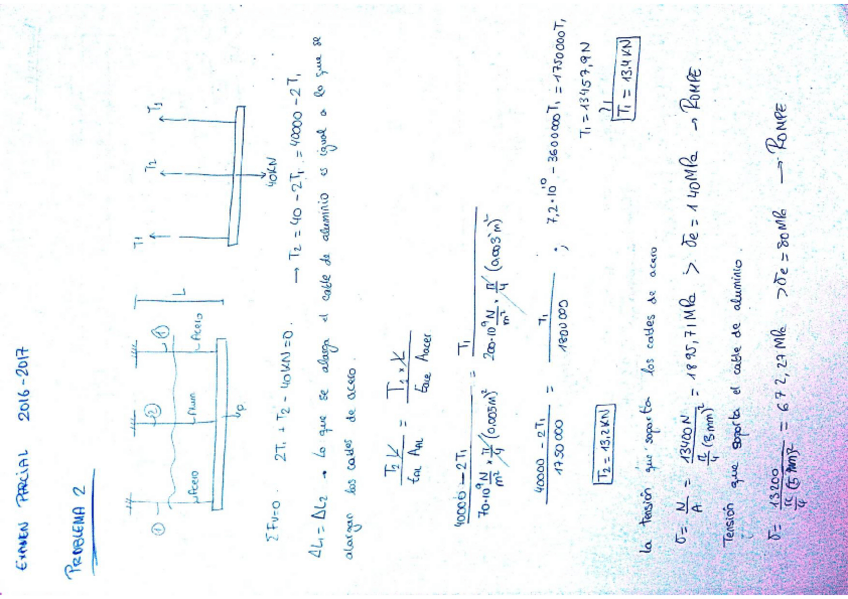 EXAMEN PARCIAL 2016-2017
PROBLEMA 2
① ② ①
Acero Alum Acero
L
P
T1 T2 T3
40KN
ΣFv=0. 2T1 + T2 - 40KN = 0. → T2 = 40 - 2T1 = 40000 - 2T1
ΔL1 = ΔL2 → Lo que se alarga el cable de aluminio es igual a lo que se
alargan los cables de acero.
T2 L / EAL AAL = T1 × L / Eace Aacer
40000 - 2T1 / 70·10⁹ N/m² × π/4 (0.005m)² = T1 / 200·10⁹ N/m² × π/4 (0.003m)²
40000 - 2T1 / 1750000 = T1 / 1800000 ; 7,2·10¹⁰ - 3600000T1 = 1750000T1
T1 = 13457,9N
T2 = 13.2KN
T1 = 13.4KN
La tensión que soporta los cables de acero.
σ = N/A = 13400N / π/4 (3mm)² = 1895,71MPa > σe = 140MPa → ROMPE.
Tensión que soporta el cable de aluminio.
σ = 13200 / π/4 (5mm)² = 672,27MPa > σe = 80MPa → ROMPE